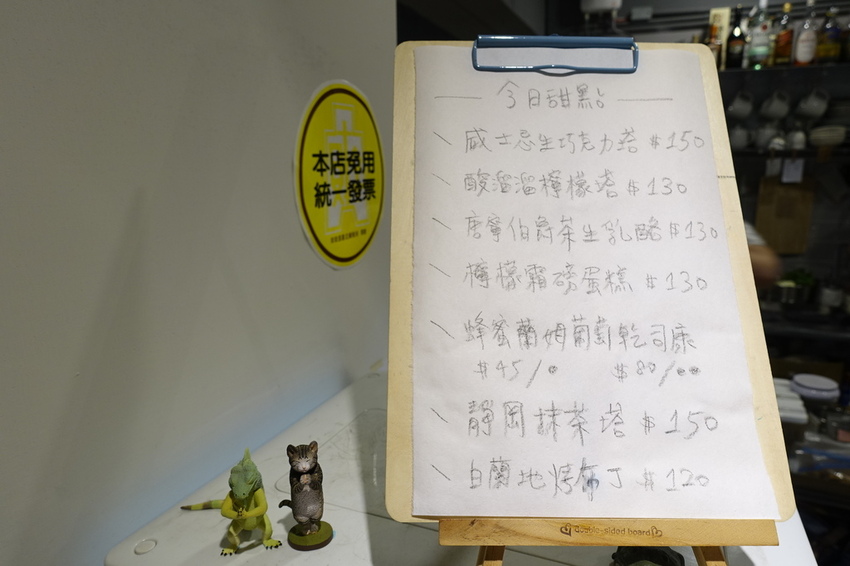 本店免用
統一發票
今日甜點
威士忌生巧克力塔 $150
酸溜溜檸檬塔 $130
唐寧伯爵茶生乳酪 $130
檸檬霜磅蛋糕 $130
蜂蜜蘭姆葡萄乾司康
$45/● $80/●●
靜岡抹茶塔 $150
白蘭地烤布丁 $120
double-sided board